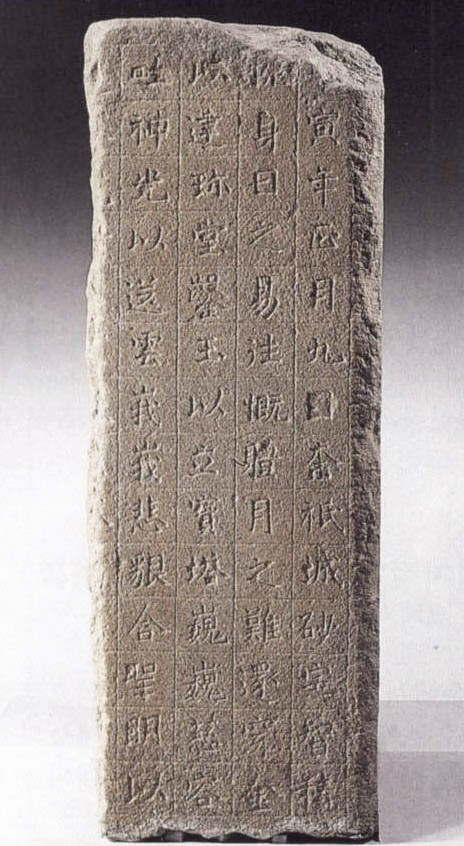 寅年正月九日奈祇城砂宅智積
慷身日之易往慨體月之難還穿金
以建珍堂鑿玉以立寶塔巍巍慈容
吐神光以送雲峩峩悲貇含聖明以